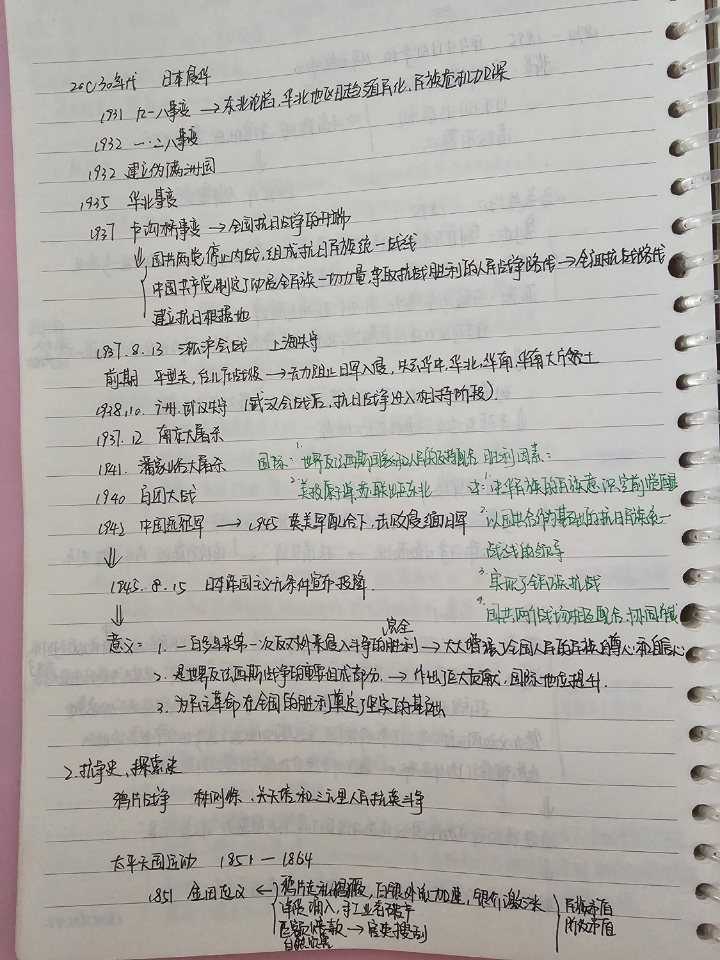 20C30年代 日本侵华
1931 九一八事变 → 东北沦陷,华北地区日趋殖民化,民族危机加深
1932 一·二八事变
1932 建立伪满洲国
1935 华北事变
1937 卢沟桥事变 → 全国抗日战争的开端
⇓ 国共两党停止内战,组成抗日民族统一战线
中国共产党制定了动员全民族一切力量争取抗战胜利的人民战争路线 → 全面抗战路线
建立抗日根据地
1937.8.13 淞沪会战 上海失守
前期 平型关,台儿庄战役 → 无力阻止日军入侵,华中,华北,华南大片领土
1938.10.广州.武汉失守(武汉会战后,抗日战争进入相持阶段)
1937.12 南京大屠杀
1941.潘家峪大屠杀 国际:1.世界反法西斯国家和人民的支持配合 胜利因素:
2.美投原子弹,苏联出兵东北 中:1.中华民族的民族意识空前觉醒
1940 百团大战
1942 中国远征军 → 1945 英美军配合下,击败侵缅日军 2.以国共合作为基础的抗日民族统一
战线的领导
⇓
3.实现了全民族抗战
1945.8.15 日本帝国主义无条件宣布投降.
4.国共两个战场相互配合,协同作战
⇓
意义: 1.一百多年来第一次反对外来侵入斗争的完全胜利 → 大大增强了全国人民的民族自尊心和自信心
2.是世界反法西斯战争的重要组成部分. → 作出了巨大贡献,国际地位提升.
3.为民主革命在全国的胜利奠定了坚实的基础
2.抗争史,探索史
鸦片战争 林则徐、关天培和三元里人民抗英斗争
太平天国运动 1851—1864
1851 金田起义 ← 鸦片走私猖獗,白银外流加速,银价激涨
洋货涌入,手工业者破产
巨额赔款 → 官吏搜刮
自然灾害
民族矛盾
阶级矛盾